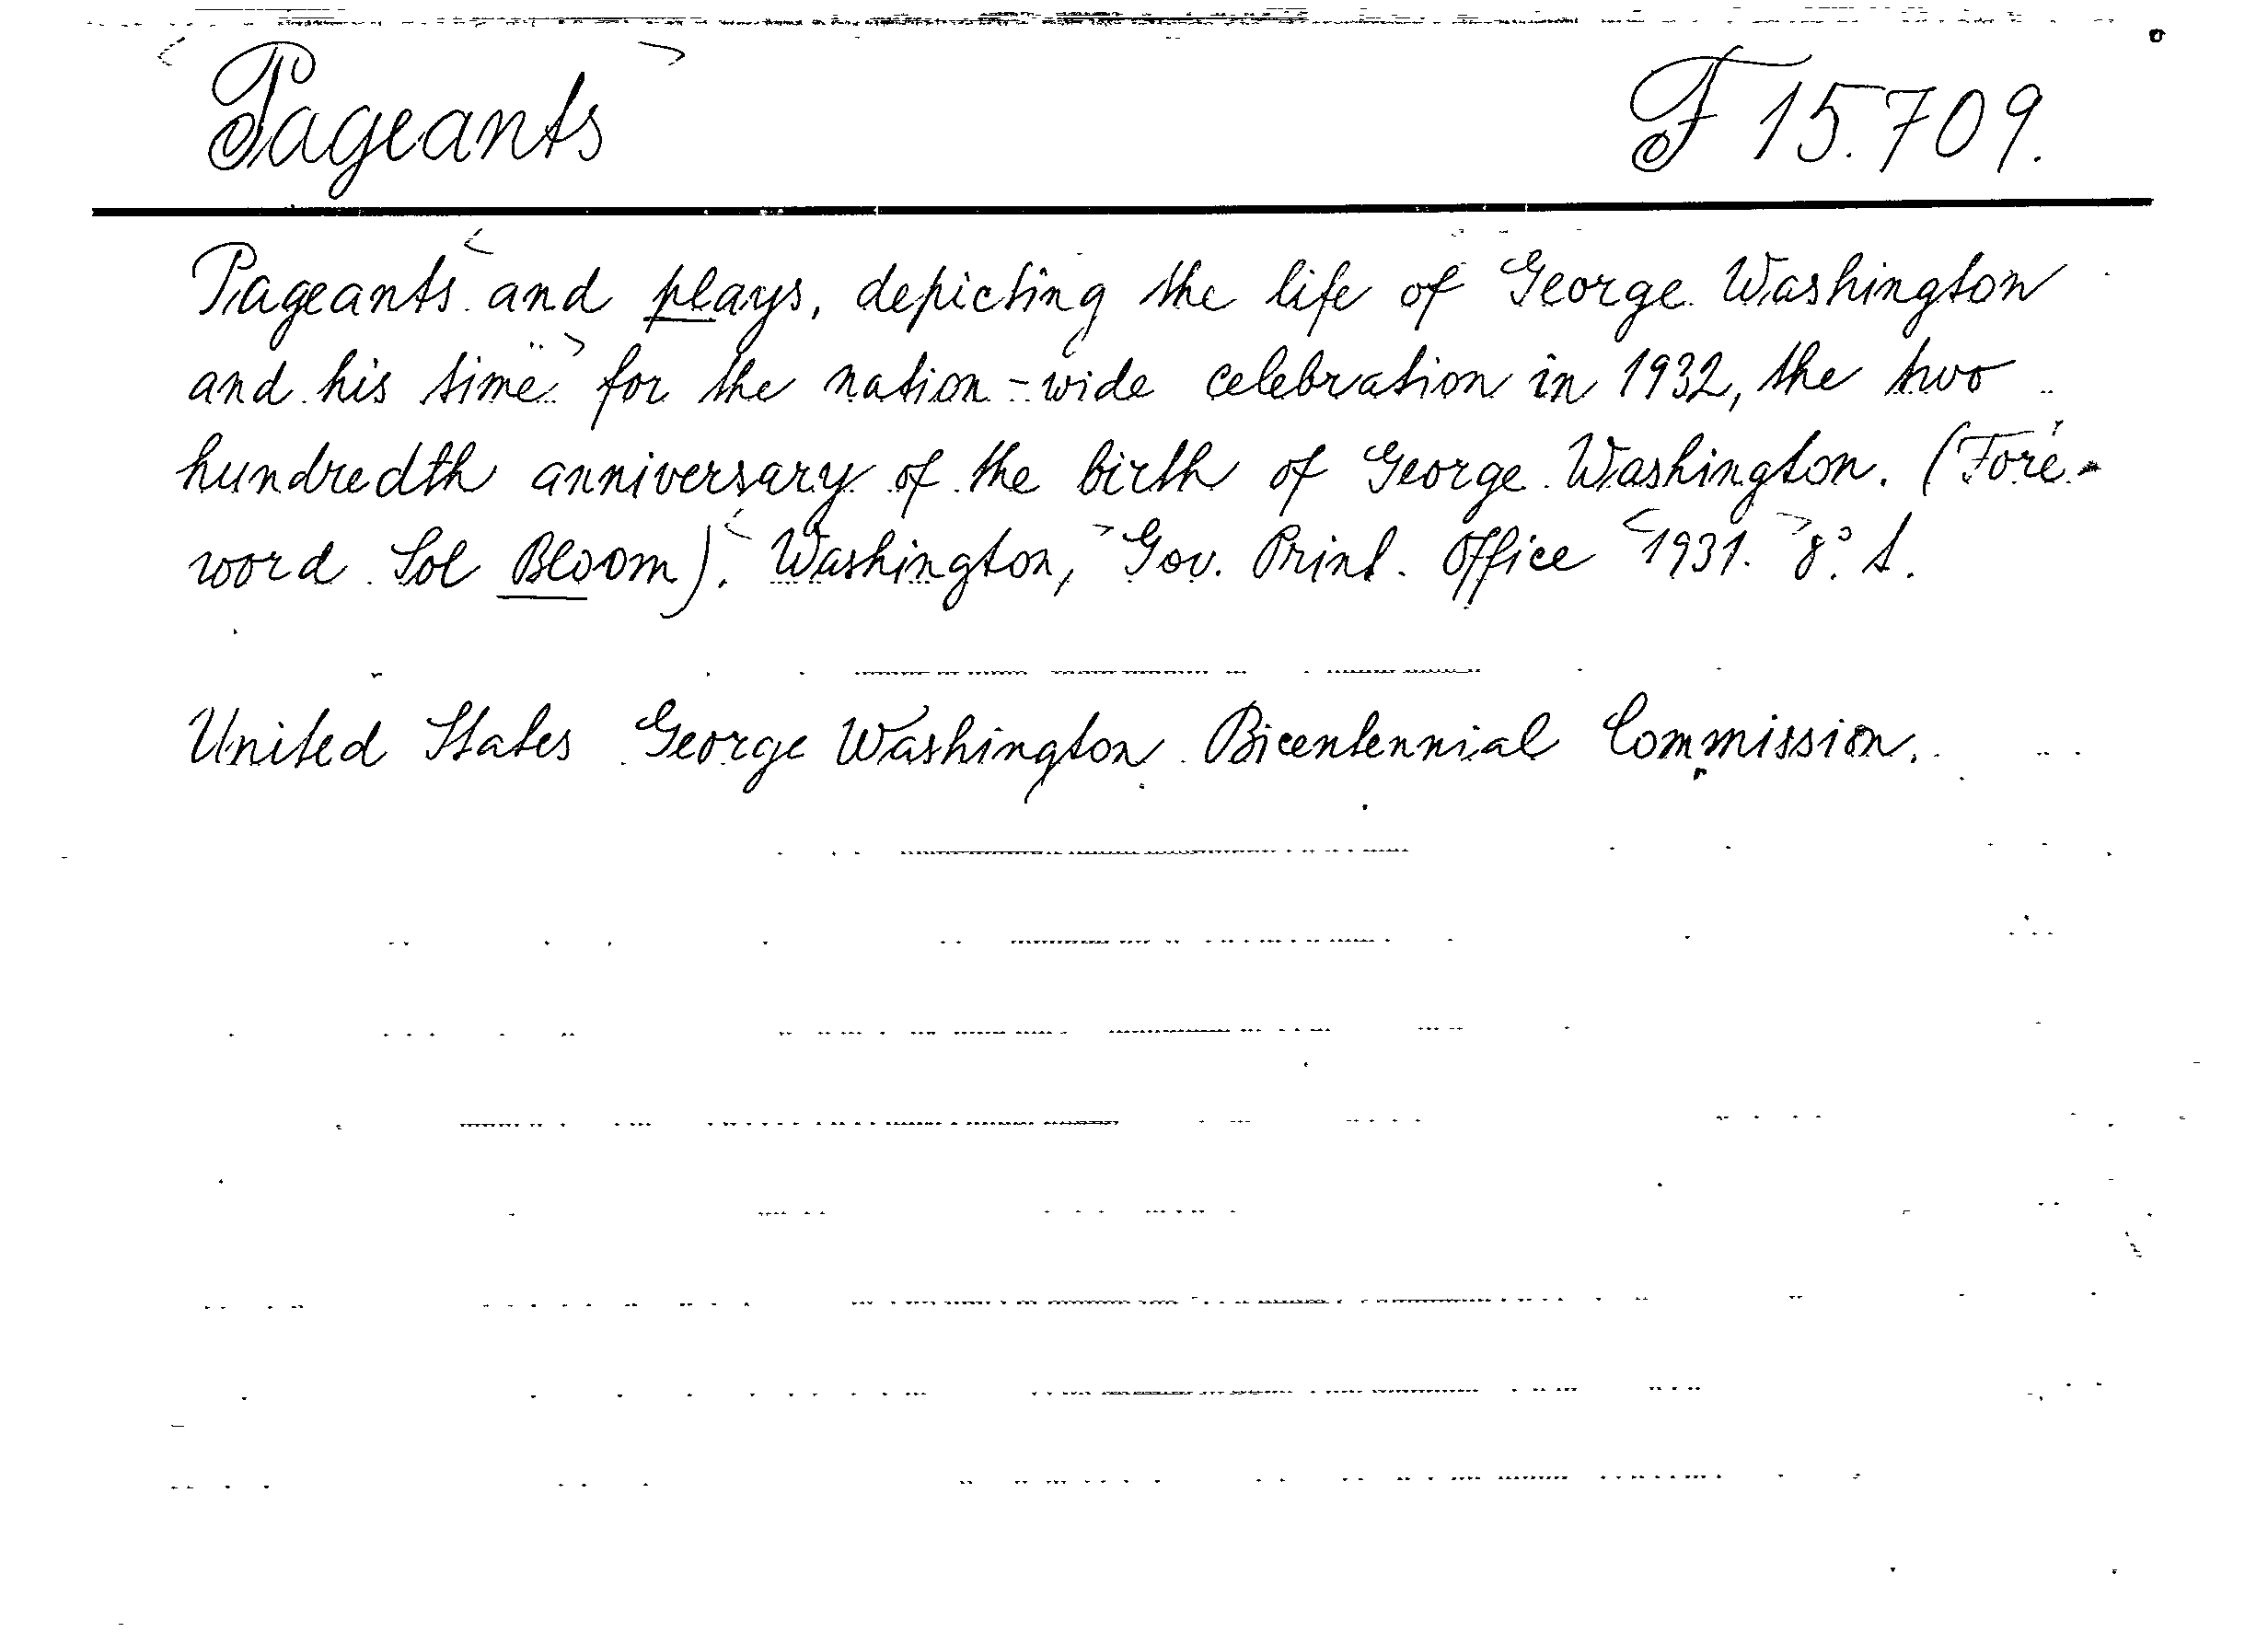 Pageants F 15.709.
Pageants and plays, depicting the life of George Washington
and his time for the nation-wide celebration in 1932, the two
hundredth anniversary of the birth of George Washington. (Fore-
word Sol Bloom). Washington, Gov. Print. Office 1931. 8°. t.
United States George Washington Bicentennial Commission.